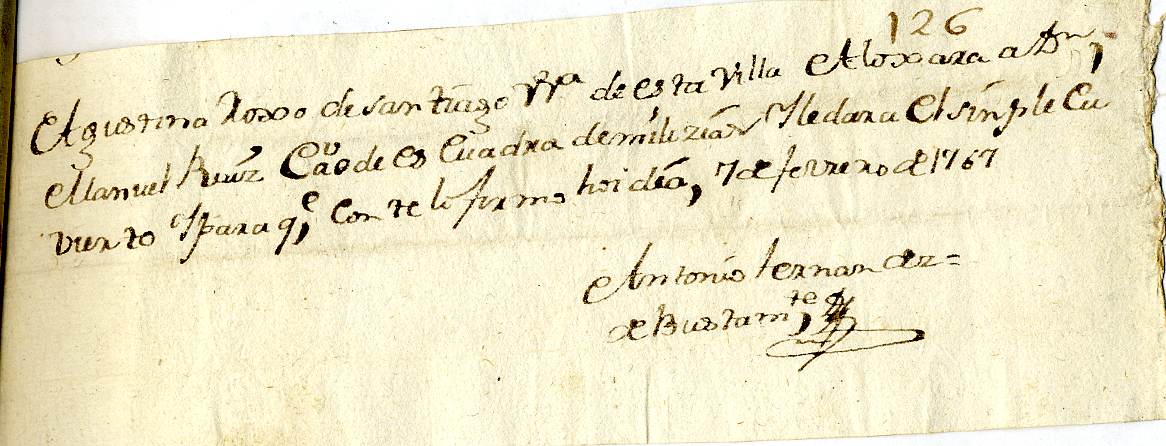 126
Agustina Roxo de santiago Vᵃ de esta Villa Aloxara a Dⁿ,
Manuel Ruiz Cavo de es Cuadra de milizias Y ledara El sinple Cu
vierto Y para qᵉ, Conste lo firmo hoi dia, 7 de febrero de 1767
Antonio fernandez =
de Bustamᵗᵉ,